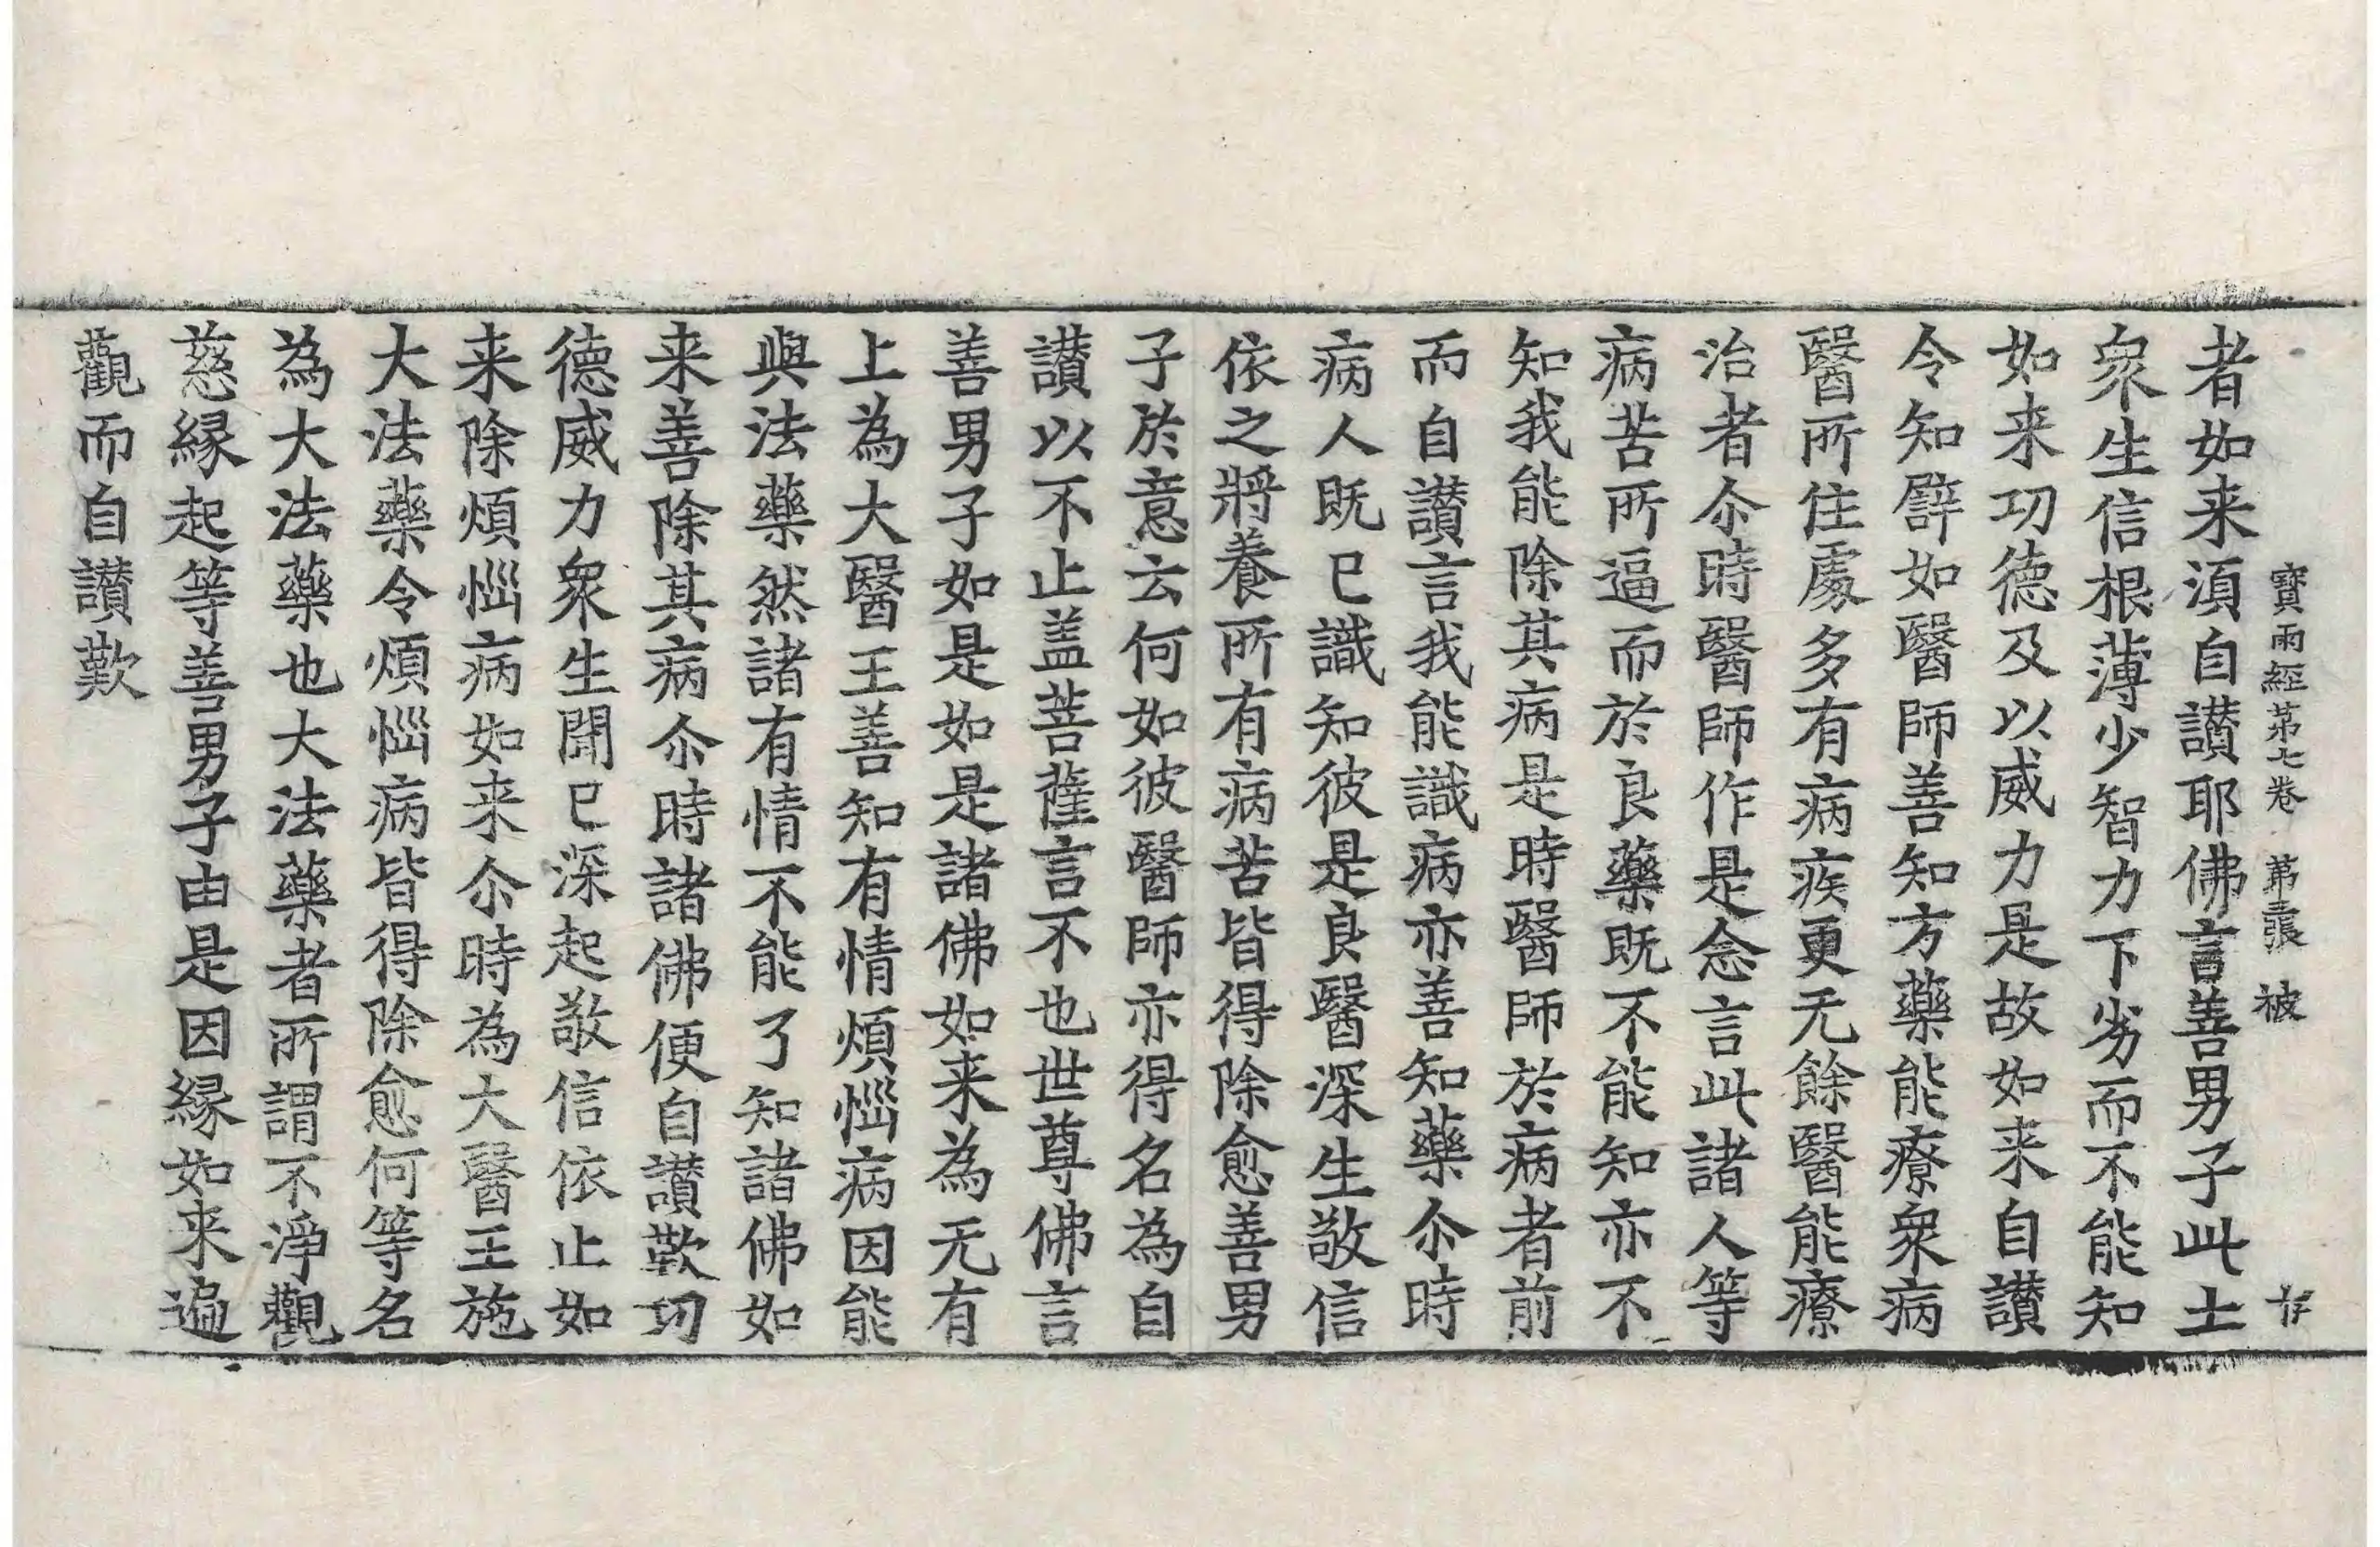 寳雨經苐七卷 苐二張 被
者如来湏自讃耶佛言善男子此土
衆生信根薄少智力下劣而不能知
如来功德及以威力是故如来自讃
令知辟如醫師善知方藥能療衆病
醫所住處多有病疾更无餘醫能療
治者尒時醫師作是念言此諸人等
病苦所逼而於良藥既不能知亦不
知我能除其病是時醫師於病者前
而自讃言我能識病亦善知藥尒時
病人既巳識知彼是良醫深生敬信
依之將養所有病苦皆得除愈善男
子於意云何如彼醫師亦得名為自
讃以不止盖菩薩言不也世尊佛言
善男子如是如是諸佛如来為无有
上為大醫王善知有情煩惱病因能
與法藥然諸有情不能了知諸佛如
来善除其病尒時諸佛便自讃歎功
德威力衆生聞巳深起敬信依止如
来除煩惱病如来尒時為大醫王施
大法藥令煩惱病皆得除愈何等名
為大法藥也大法藥者所謂不淨觀
慈縁起等善男子由是因縁如来遍
觀而自讃歎